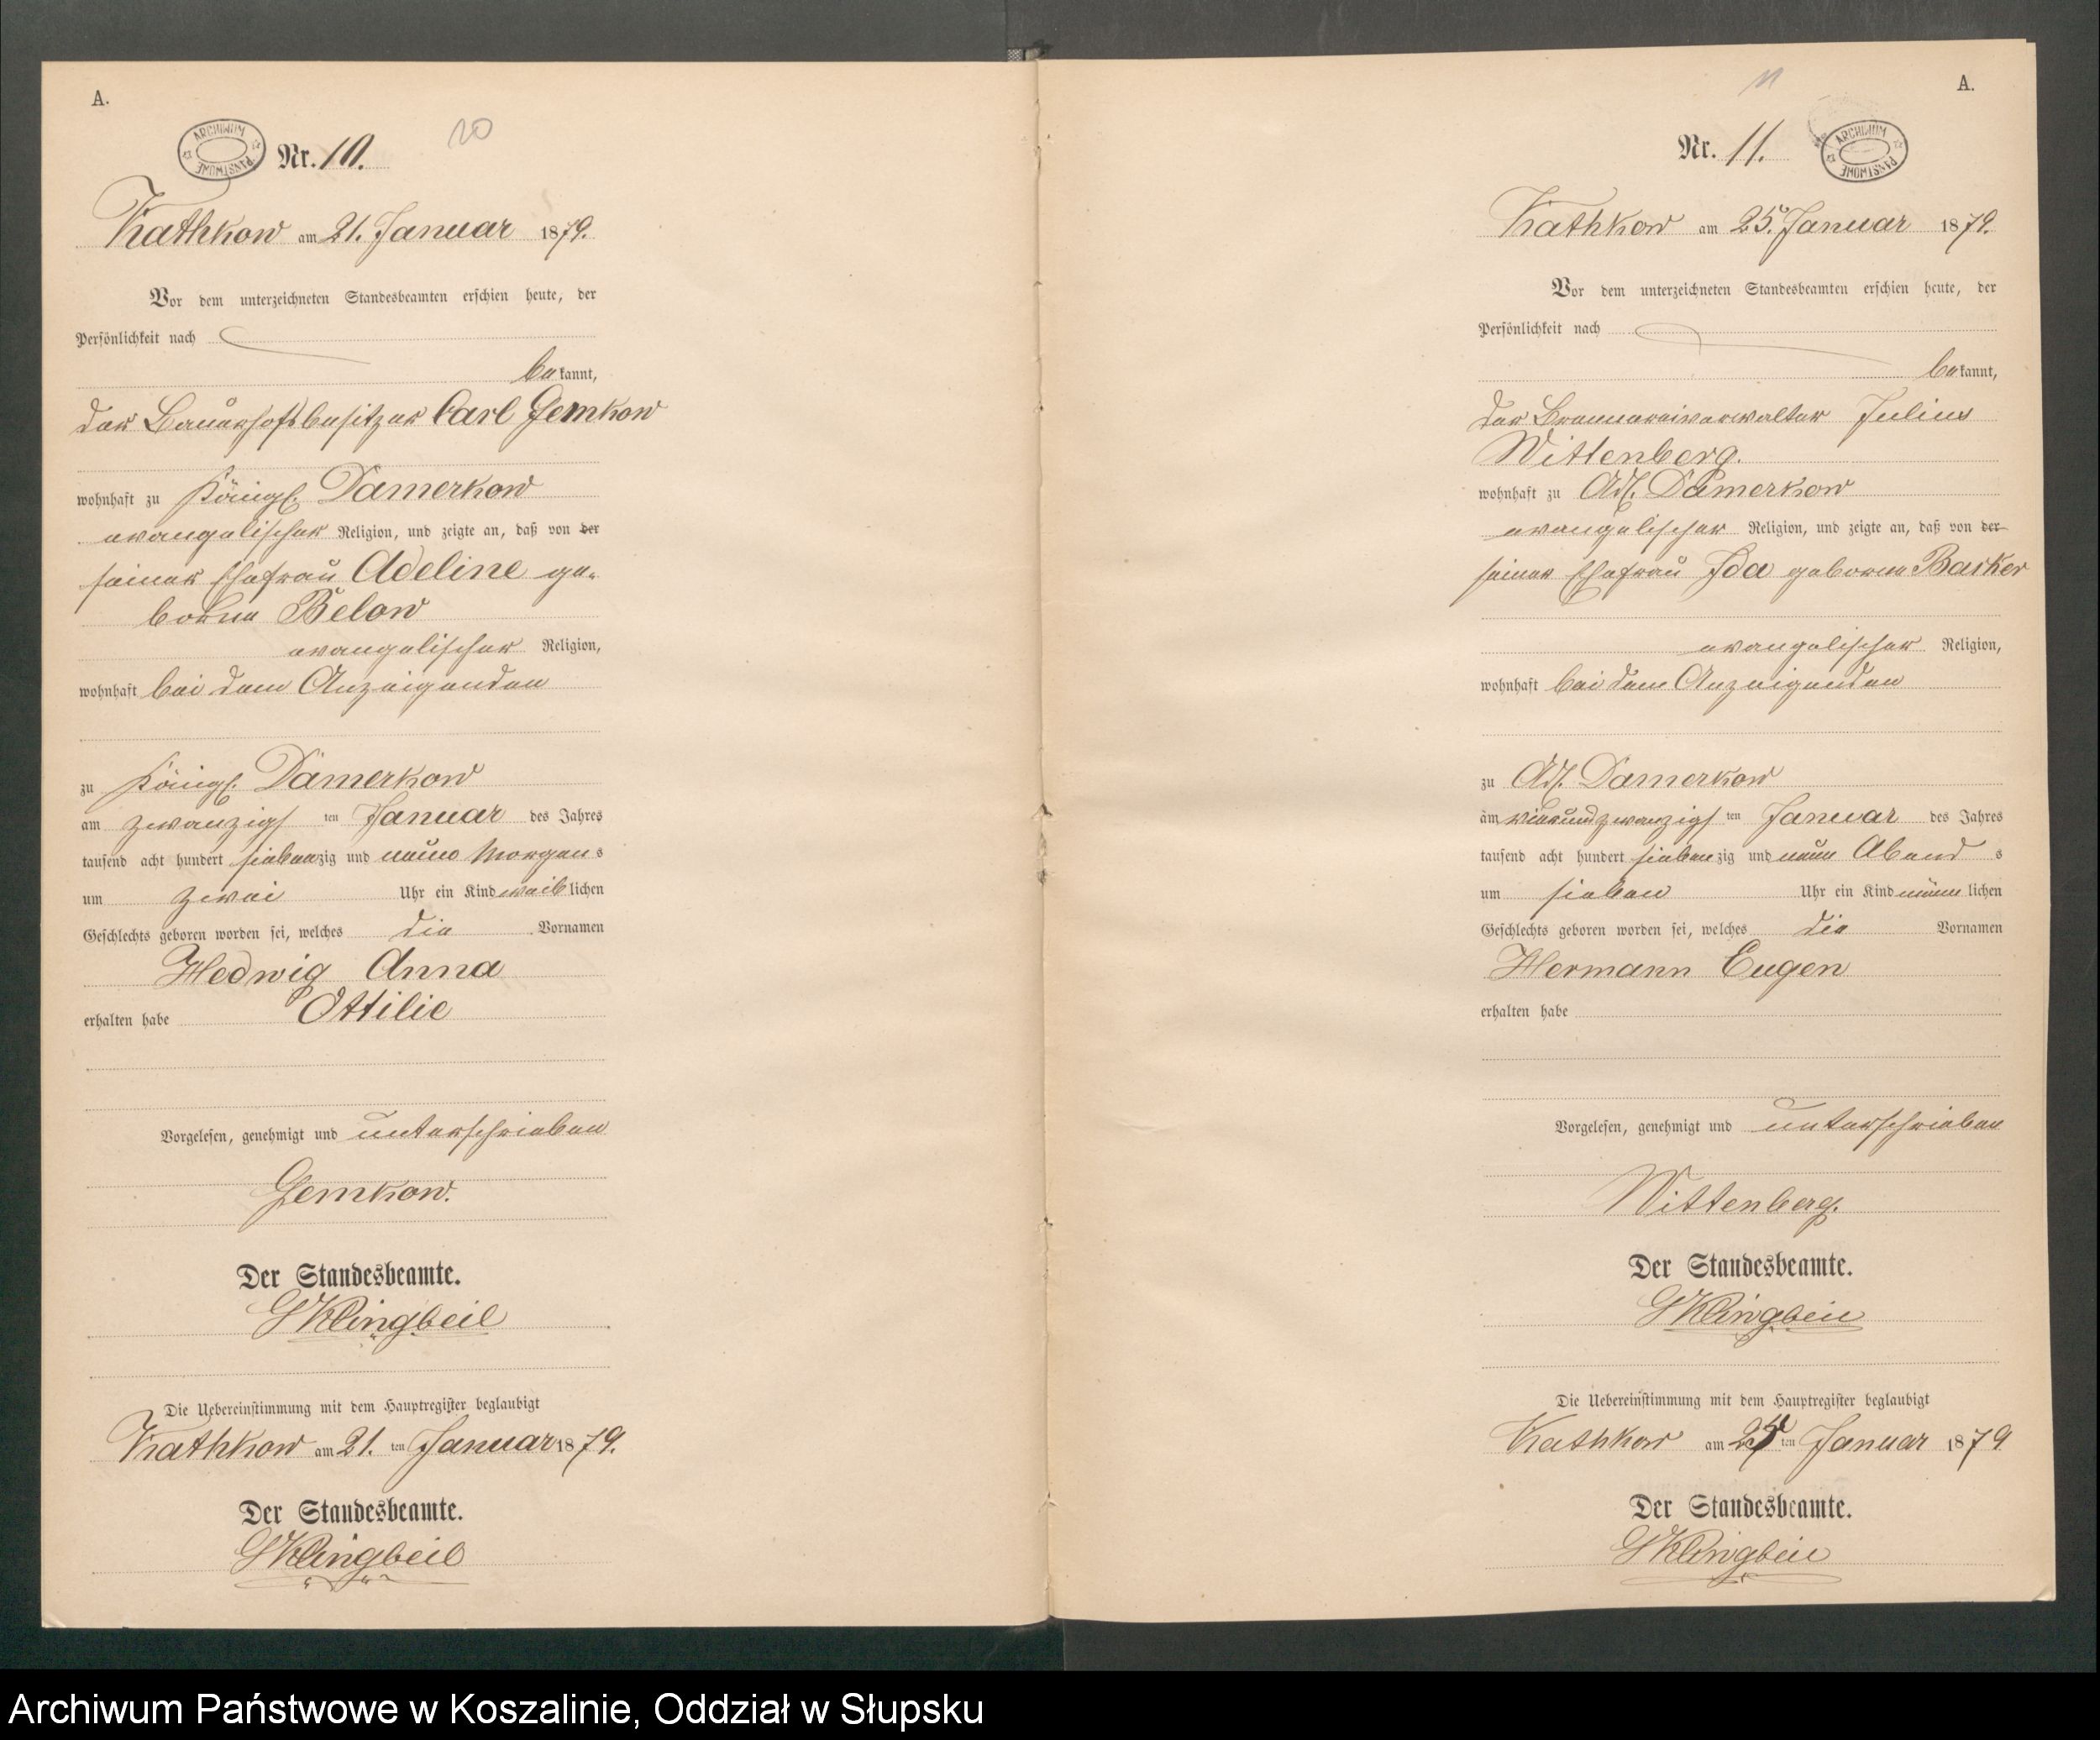 A.
ARCHIWUM PAŃSTWOWE
Nr. 10.
10
Kathkow am 21. Januar 1879.
Vor dem unterzeichneten Standesbeamten erschien heute, der
Persönlichkeit nach
bekannt,
der Bauerhofsbesitzer Carl Gemkow
wohnhaft zu Königl. Damerkow
evangelischer Religion, und zeigte an, daß von der
seiner Ehefrau Adeline ge-
borne Below
evangelischer Religion,
wohnhaft bei dem Anzeigenden
zu Königl. Damerkow
am zwanzigsten Januar des Jahres
tausend acht hundert siebenzig und neun Morgens
um zwei Uhr ein Kind weiblichen
Geschlechts geboren worden sei, welches die Vornamen
Hedwig Anna
erhalten habe Ottilie
Vorgelesen, genehmigt und unterschrieben
Gemkow.
Der Standesbeamte.
Klingbeil
Die Uebereinstimmung mit dem Hauptregister beglaubigt
Kathkow am 21. ten Januar 1879.
Der Standesbeamte.
Klingbeil
11
A.
Nr. 11.
ARCHIWUM PAŃSTWOWE
Kathkow am 25. Januar 1879.
Vor dem unterzeichneten Standesbeamten erschien heute, der
Persönlichkeit nach
bekannt,
der Brennereiverwalter Julius
Wittenberg.
wohnhaft zu Adl. Damerkow
evangelischer Religion, und zeigte an, daß von der
seiner Ehefrau Ida geborne Barker
evangelischer Religion,
wohnhaft bei dem Anzeigenden
zu Adl. Damerkow
am vierundzwanzigsten Januar des Jahres
tausend acht hundert siebenzig und neun Abends
um sieben Uhr ein Kind männlichen
Geschlechts geboren worden sei, welches die Vornamen
Hermann Eugen
erhalten habe
Vorgelesen, genehmigt und unterschrieben
Wittenberg.
Der Standesbeamte.
Klingbeil
Die Uebereinstimmung mit dem Hauptregister beglaubigt
Kathkow am 25 ten Januar 1879
Der Standesbeamte.
Klingbeil
Archiwum Państwowe w Koszalinie, Oddział w Słupsku